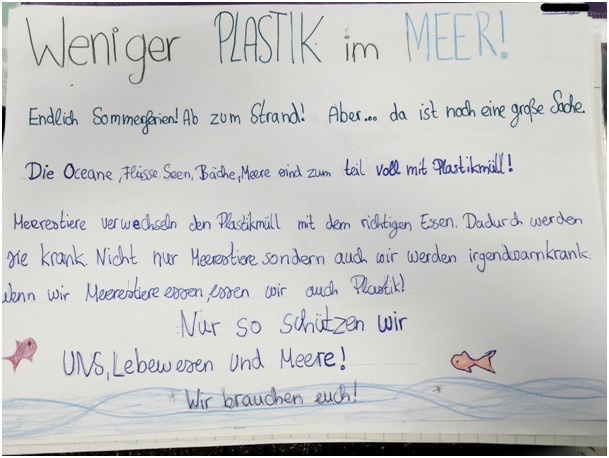 Weniger PLASTIK im MEER!
Endlich Sommerferien! Ab zum Strand! Aber... da ist noch eine große Sache.
Die Oceane, Flüsse, Seen, Bäche, Meere sind zum teil voll mit Plastikmüll!
Meerestiere verwechseln den Plastikmüll mit dem richtigen Essen. Dadurch werden
sie krank. Nicht nur Meerestiere sondern auch wir werden irgendwann krank.
Wenn wir Meerestiere essen, essen wir auch Plastik!
Nur so schützen wir
UNS, Lebewesen und Meere!
Wir brauchen euch!